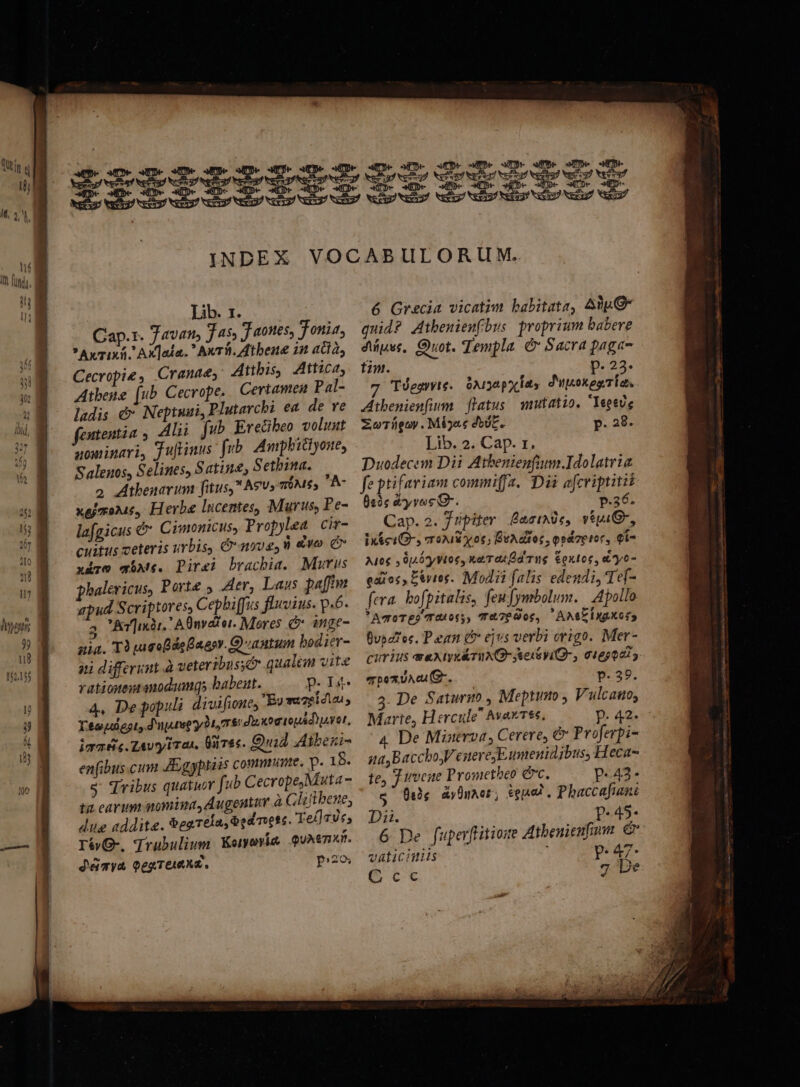 INDEX VOCABULORUM.
Lib. 1.
Cap.1. Javan, Jas, Jaones, Jonia,
Ἀκτικὴ. Ἀκταία. Ἀκτὴ. Athenæ in actâ,
Cecropiæ, Cranaæ, Atthis, Attica,
Athenæ sub Cecrope. Certamen Pal-
ladis & Neptuni, Plutarchi ea de re
sententia, Alii sub Erectheo volunt
nominari, Justinus sub Amphictyone,
Salenos, Selines, Satine, Sethina.
2 Athenarum situs, Ἄςυ, πόλις, Ἀ-
κρόπολις, Herbæ lucentes, Murus, Pe-
lasgicus & Cimonicus, Propylea cir-
cuitus veteris urbis, & πόλις, ἡ ἄνω &
κάτω πόλις. Piræi brachia. Murus
phalericus, Portæ, Aer, Laus passim
apud Scriptores, Cephissus fluvius. p.6.
3 Ἀττικὸι. Ἀθηναῖοι. Mores & inge-
nia. Τὸ Quantum hodier-
ni differunt à veteribus; & qualem vitæ
rationem modumq; habent. p. 14.
4. De populi divisione, Εὐπατρίδαι,
ἱππεῖς. Ζευγῖται, θῆτες. Quid Atheni-
ensibus cum Ægyptiis commune. p. 18.
5 Tribus quatuor sub Cecrope, Muta-
ta earum nomina, Augentur à Clisthene,
duæ additæ. Φρατρία, φράτορες. Τριττὺς,
Γένος, Trubulium Κοινωνία φυλετικὴ.
δεῖπνα φρατρικὰ. p.20.
6 Græcia vicatim habitata, Δῆμος
quid? Atheniensibus proprium habere
δήμους. Quot. Templa & Sacra paga-
tim. p.23.
7 Τύραννις. ὀλιγαρχίας δημοκρατία.
Atheniensium status mutatio. Ἱερεὺς
Σωτήρων. Μέγας δοὺξ. p. 28.
Lib. 2. Cap. 1.
Duodecem Dii Atheniensium. Idolatria
se ptifariam commissa. Dii ascriptitii
θεὸς ἄγνωςος. p.36.
Cap. 2. Jupiter βασιλεὺς, νέμιος,
ἱκέσιος, πολιοῦχος, βουλαῖος, φράτριος, φί-
λιος, ὁμόγνιος, καταιβάτης ὅρκιος, ἀγο-
ραῖος, ξένιος. Modii salis edendi, Tes-
sera hospitalis, seu symbolum. Apollo
Ἀποτρόπαιος, πατρῷος, Ἀλεξίκακος,
θυραῖος. Pæan & ejus verbi origo. Mer-
curius ἐριούνιος, στροφαῖος,
προπύλαιος. p. 39.
3. De Saturno, Neptuno, Vulcano,
Marte, Hercule Ἄνακτες. p. 42.
4 De Minerva, Cerere, & Proserpi-
na, Baccho, Venere, Eumenidibus, Heca-
te, Juvene Prometheo &c. p.43.
5 θεὸς ἄνθηλος, ἑρμαῖ. Phaccasiani
Dii. p.45.
6 De superstitione Atheniensium &
vaticiniis p.47.
C c c
7 De